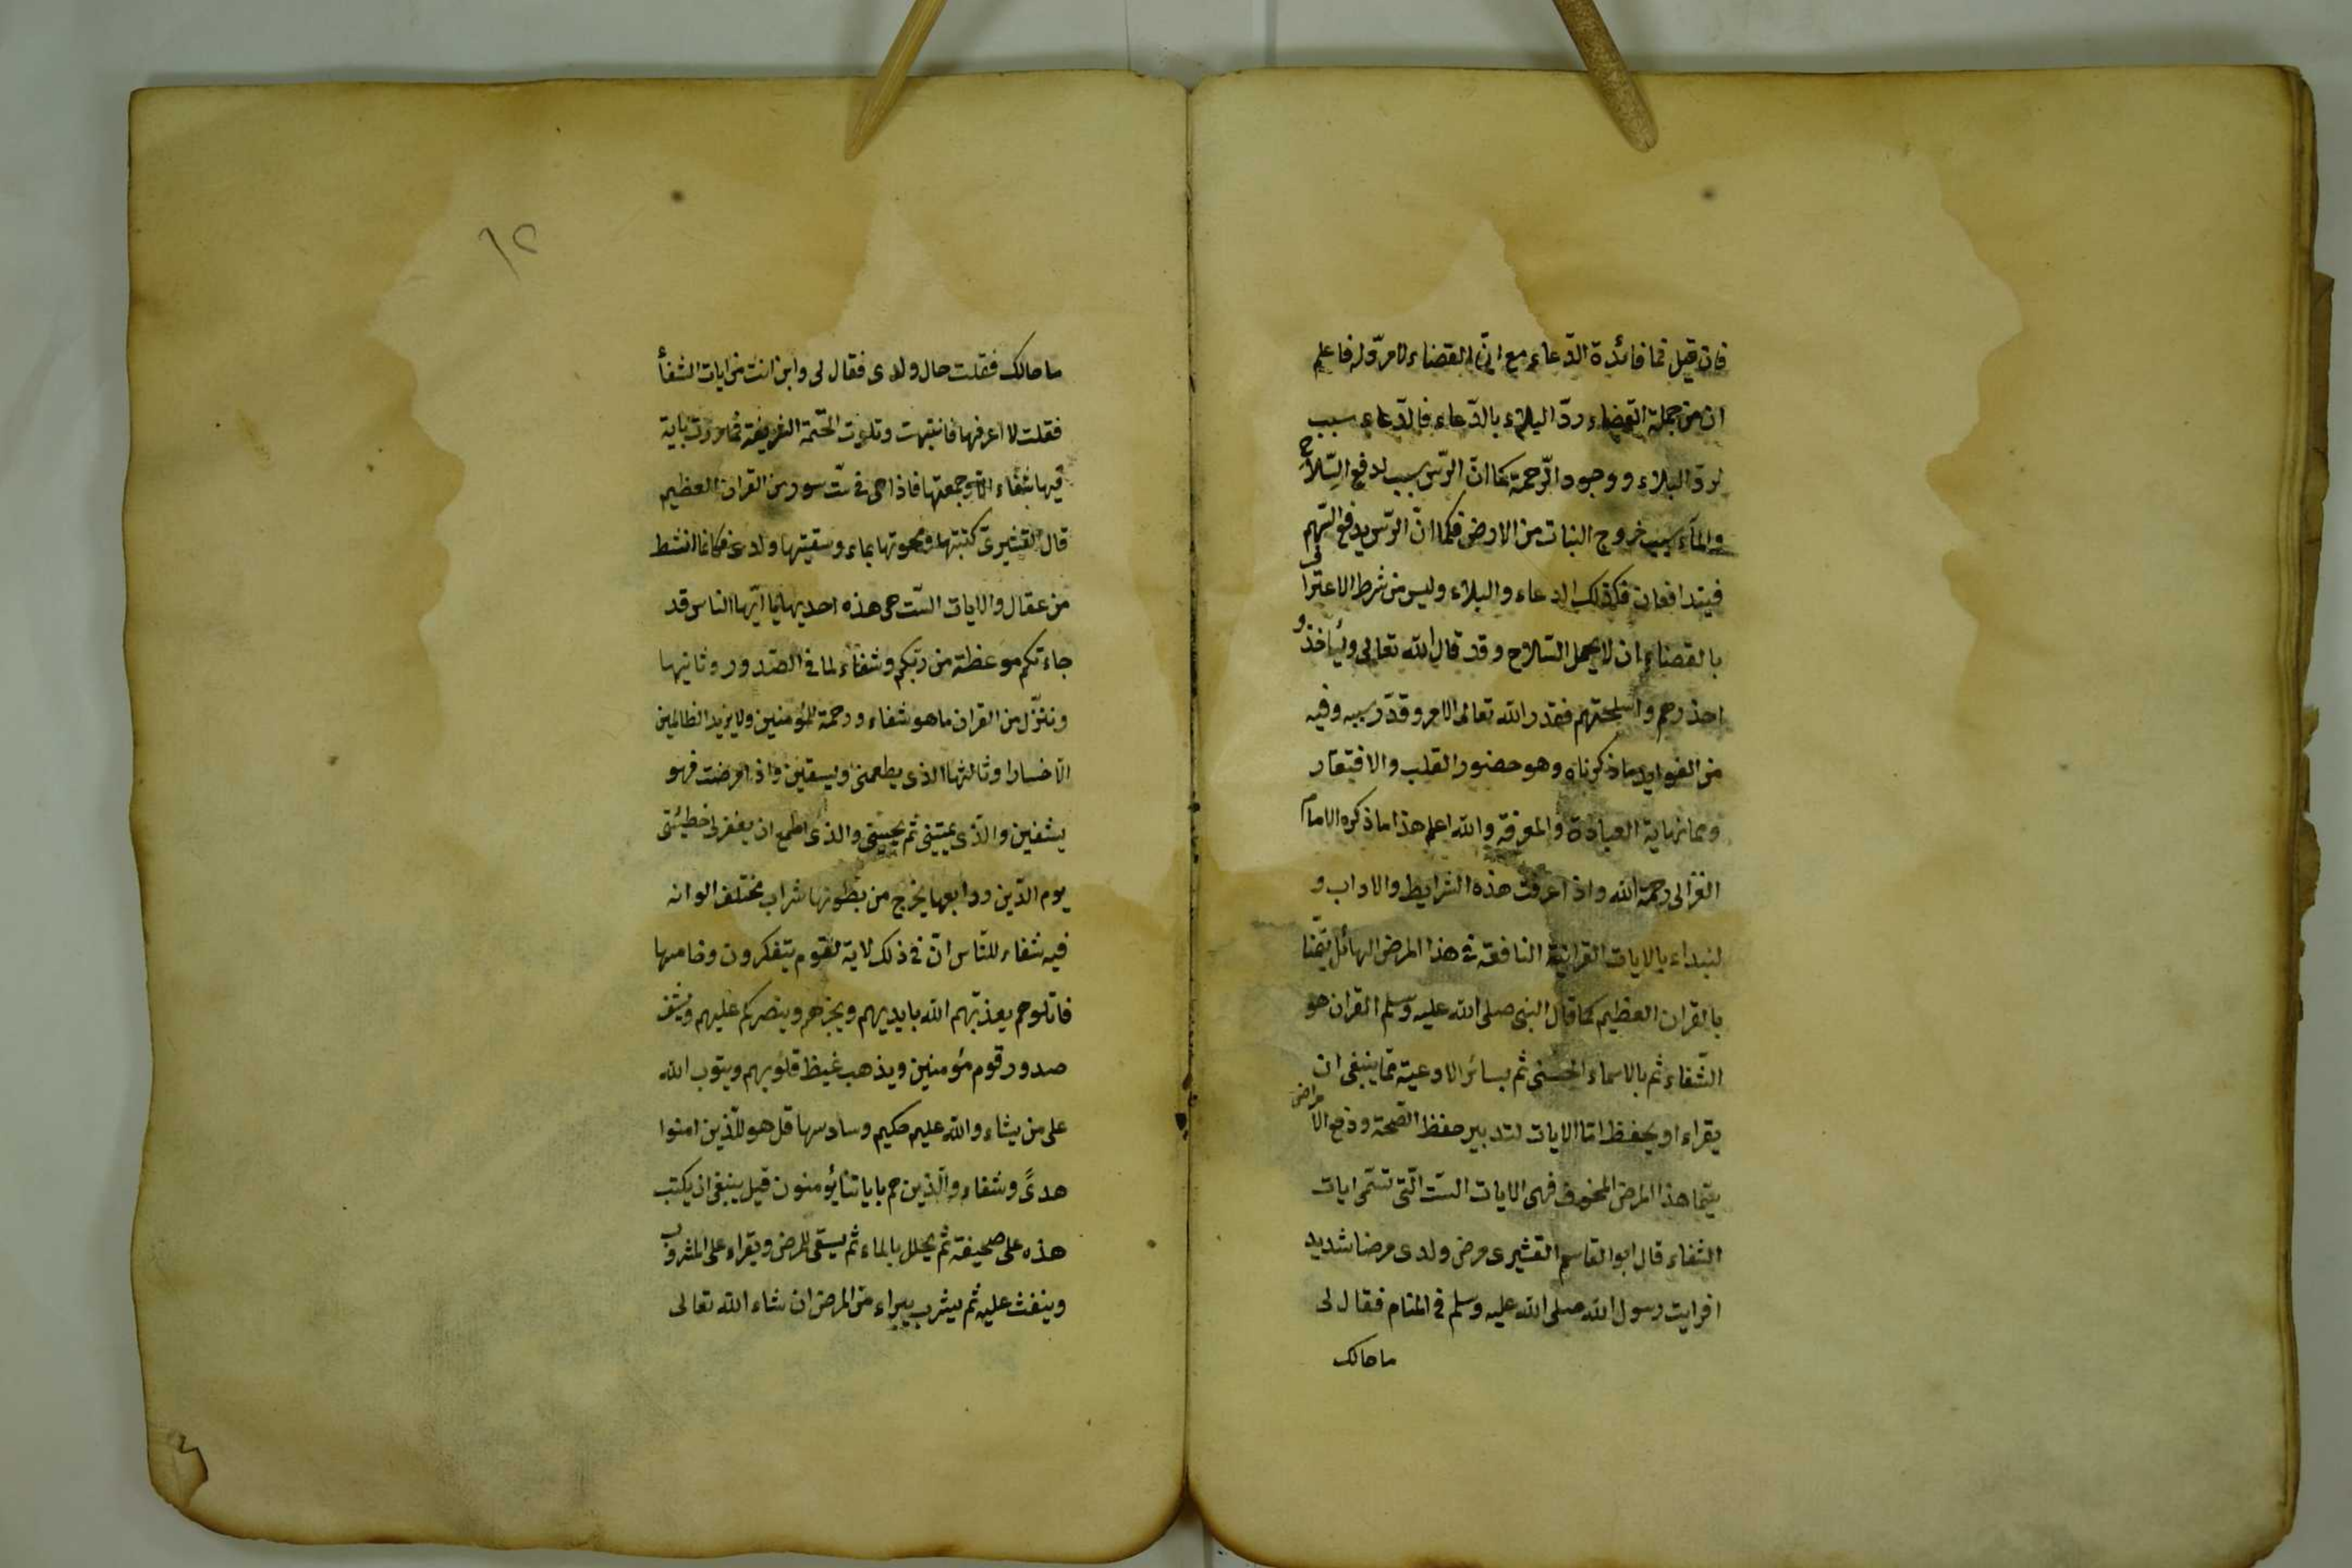 فان قيل فما فائدة الدّعاء مع انّ القضاء لا مردّ له فاعلم
ان من جملة القضاء ردّ البلاء بالدّعاء فالدّعاء سبب
لردّ البلاء ووجود الرّحمة كما انّ الترس سبب لدفع السّلاح
والمآء سبب خروج النبات من الارض فكما انّ الترس يدفع السّهم
فيتدافعان فكذلك الدعاء والبلاء وليس من شرط الاعتراف
بالقضاء ان لا يحمل السّلاح وقد قال الله تعالى وليأخذوا
حذرهم واسلحتهم فقدر الله تعالى الامر وقدّر سببه وفيه
من الفوايد ما ذكرناه وهو حضور القلب والافتقار
وهما نهاية العبادة والمعرفة والله اعلم هذا ما ذكره الامام
الغزالى رحمة الله واذا عرفت هذه الشرايط والاداب و
لنبداء بالايات القرانية النافعة فى هذا المرض الهائل تيمّنا
بالقران العظيم كما قال النبى صلى الله عليه وسلم القران هو
الشّفاء ثم بالاسماء الحسنى ثم بسائر الادعية ممّا ينبغى ان
يقراء او يحفظ امّا الايات لتدبير حفظ الصّحة ودفع الامراض
سيّما هذا المرض المخوف فهى الايات الستّ الّتى تسمّى ايات
الشفاء قال ابو القاسم القشيرى مرض ولدى مرضا شديد
افرايت رسول الله صلى الله عليه وسلم فى المنام فقال لى
ما حالك
١٢
ما حالك فقلت حال ولدى فقال لى واين انت من ايات الشفأ
فقلت لا اعرفها فانتبهت وتلوت الختمة الشريفة فما مررت باية
فيها شفاء الا وجمعتها فاذا هى فى ستّ سور من القران العظيم
قال القشيرىّ كتبتها ومحوتها بماء وسقيتها ولدى فكانما انشط
من عقال والايات السّت هى هذه احديها يا ايّها الناس قد
جاءتكم موعظة من ربّكم وشفاء لما فى الصّدور وثانيها
وننزّل من القران ما هو شفاء ورحمة للمؤمنين ولا يزيد الظالمين
الّا خسارا وثالثها الذى يطعمنى ويسقين واذا مرضت فهو
يشفين والّذى يميتنى ثم يحيينى والذى اطمع ان يغفر لى خطيئتى
يوم الدّين ورابعها يخرج من بطونها شراب مختلف الوانه
فيه شفاء للنّاس انّ فى ذلك لاية لقوم يتفكرون وخامسها
قاتلوهم يعذّبهم الله بايديهم ويخزهم وينصركم عليهم ويشف
صدور قوم مؤمنين ويذهب غيظ قلوبهم ويتوب الله
على من يشاء والله عليم حكيم وسادسها قل هو للّذين امنوا
هدىً وشفاء والّذين هم باياتنا يؤمنون قيل ينبغى ان يكتب
هذه على صحيفة ثم يحلل بالماء ثم يسقى للمرض ويقراء على المشروب
وينفث عليه ثم يشرب يبراء من المرض ان شاء الله تعالى